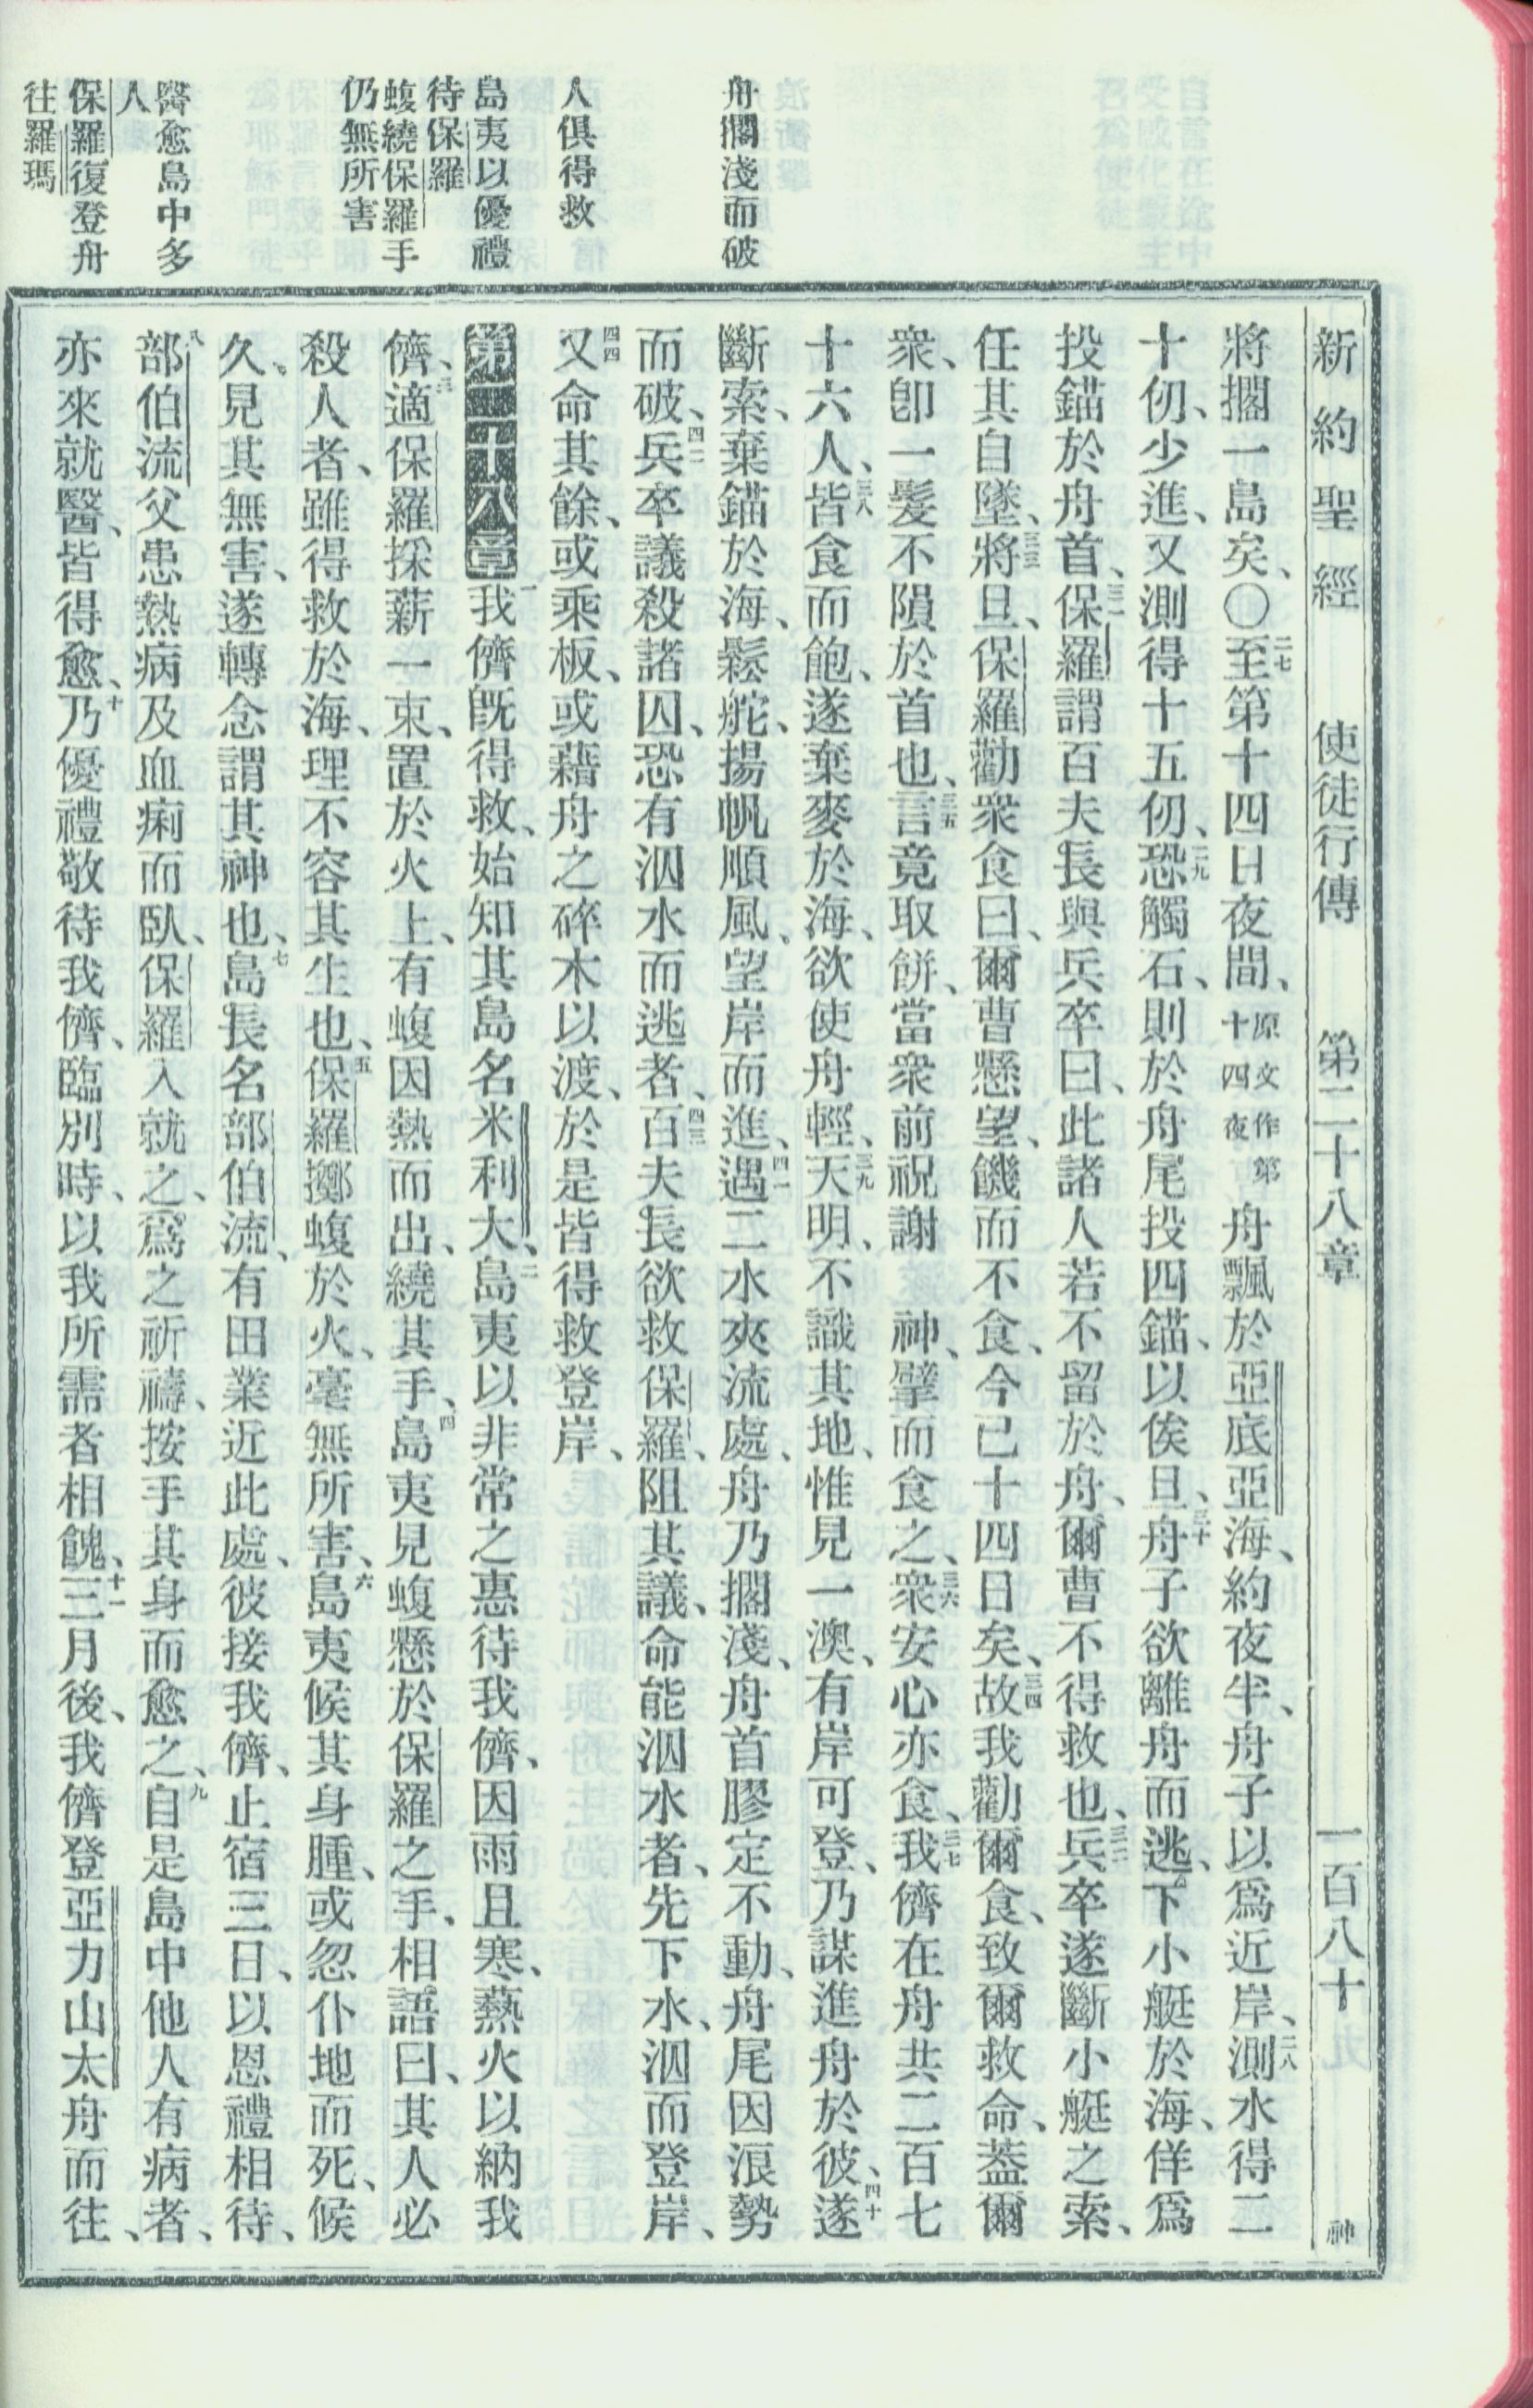 新約聖經 使徒行傳 第二十八章 一百八十 神
將擱一島矣、〇二七至第十四日夜間、原文作第十四夜舟飄於亞底亞海、約夜半、舟子以爲近岸、二八測水得二
十仞、少進、又測得十五仞、二九恐觸石、則於舟尾投四錨、以俟旦、三十舟子欲離舟而逃、下小艇於海、佯爲
投錨於舟首、三一保羅謂百夫長與兵卒曰、此諸人若不留於舟、爾曹不得救也、三二兵卒遂斷小艇之索、
任其自墜、三三將旦、保羅勸衆食曰、爾曹懸望、饑而不食、今已十四日矣、三四故我勸爾食、致爾救命、葢爾
衆、卽一髮不隕於首也、三五言竟取餅、當衆前祝謝 神、擘而食之、三六衆安心亦食、三七我儕在舟共二百七
十六人、三八皆食而飽、遂棄麥於海、欲使舟輕、三九天明、不識其地、惟見一澳、有岸可登、乃謀進舟於彼、四十遂
斷索、棄錨於海、鬆舵、揚帆順風、望岸而進、四一遇二水夾流處、舟乃擱淺、舟首膠定不動、舟尾因浪勢
而破、四二兵卒議殺諸囚、恐有泅水而逃者、四三百夫長欲救保羅、阻其議、命能泅水者、先下水、泅而登岸、
四四又命其餘、或乘板、或藉舟之碎木以渡、於是皆得救登岸、
第二十八章 一我儕旣得救、始知其島名米利大、二島夷以非常之惠待我儕、因雨且寒、爇火以納我
儕、三適保羅採薪一束、置於火上、有蝮因熱而出、繞其手、四島夷見蝮懸於保羅之手、相語曰、其人必
殺人者、雖得救於海、理不容其生也、五保羅擲蝮於火、毫無所害、六島夷候其身腫、或忽仆地而死、候
久、見其無害、遂轉念謂其神也、七島長名部伯流、有田業近此處、彼接我儕、止宿三日、以恩禮相待、
八部伯流父患熱病及血痢而臥、保羅入就之、爲之祈禱、按手其身而愈之、九自是島中他人有病者、
亦來就醫、皆得愈、十乃優禮敬待我儕、臨別時、以我所需者相餽、十一三月後、我儕登亞力山太舟而往、
舟擱淺而破
人俱得救
島夷以優禮
待保羅
蝮繞保羅手
仍無所害
醫愈島中多
人
保羅復登舟
往羅瑪